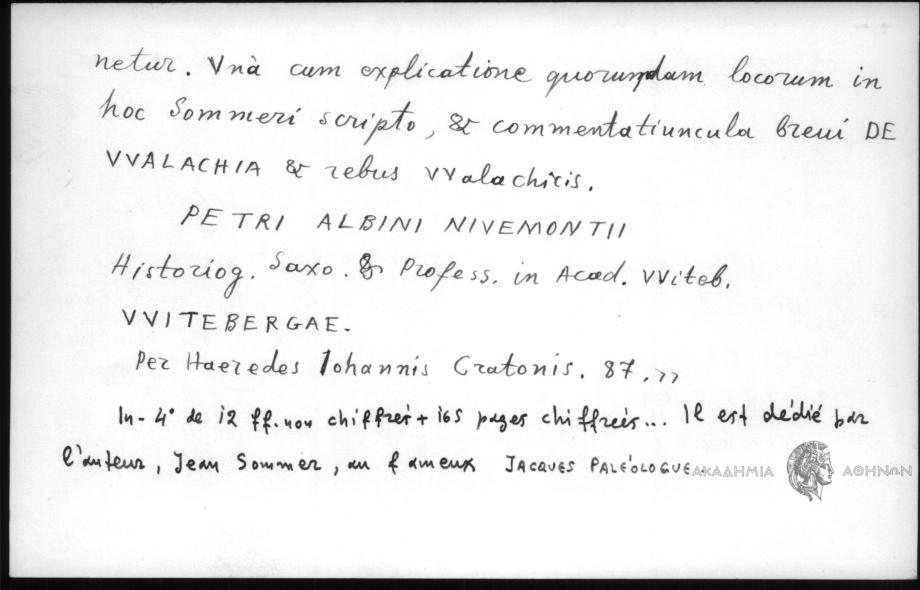 netur. Vnà cum explicatione quorumdam locorum in
hoc Sommeri scripto, & commentatiuncula breui DE
VVALACHIA & rebus VValachicis.
PETRI ALBINI NIVEMONTII
Historiog. Saxo. & Profess. in Acad. VViteb.
VVITEBERGAE.
Per Haeredes Iohannis Cratonis. 87.»
In-4° de 12 ff. non chiffrés + 165 pages chiffrées... Il est dédié par
l'auteur, Jean Sommer, au fameux JACQUES PALÉOLOGUE..
ΑΚΑΔΗΜΙΑ ΑΘΗΝΩΝ